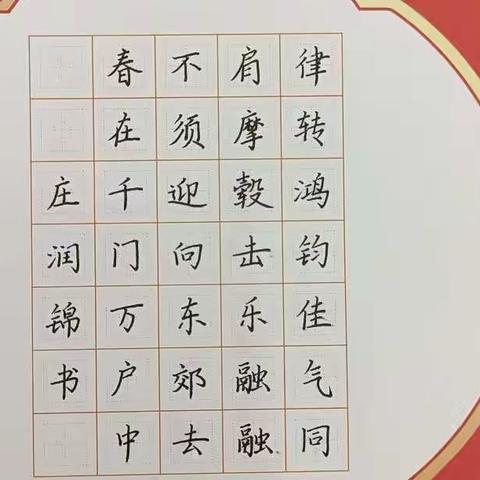 律转鸿钧佳气同
肩摩毂击乐融融
不须迎向东郊去
春在千门万户中
庄润锦书